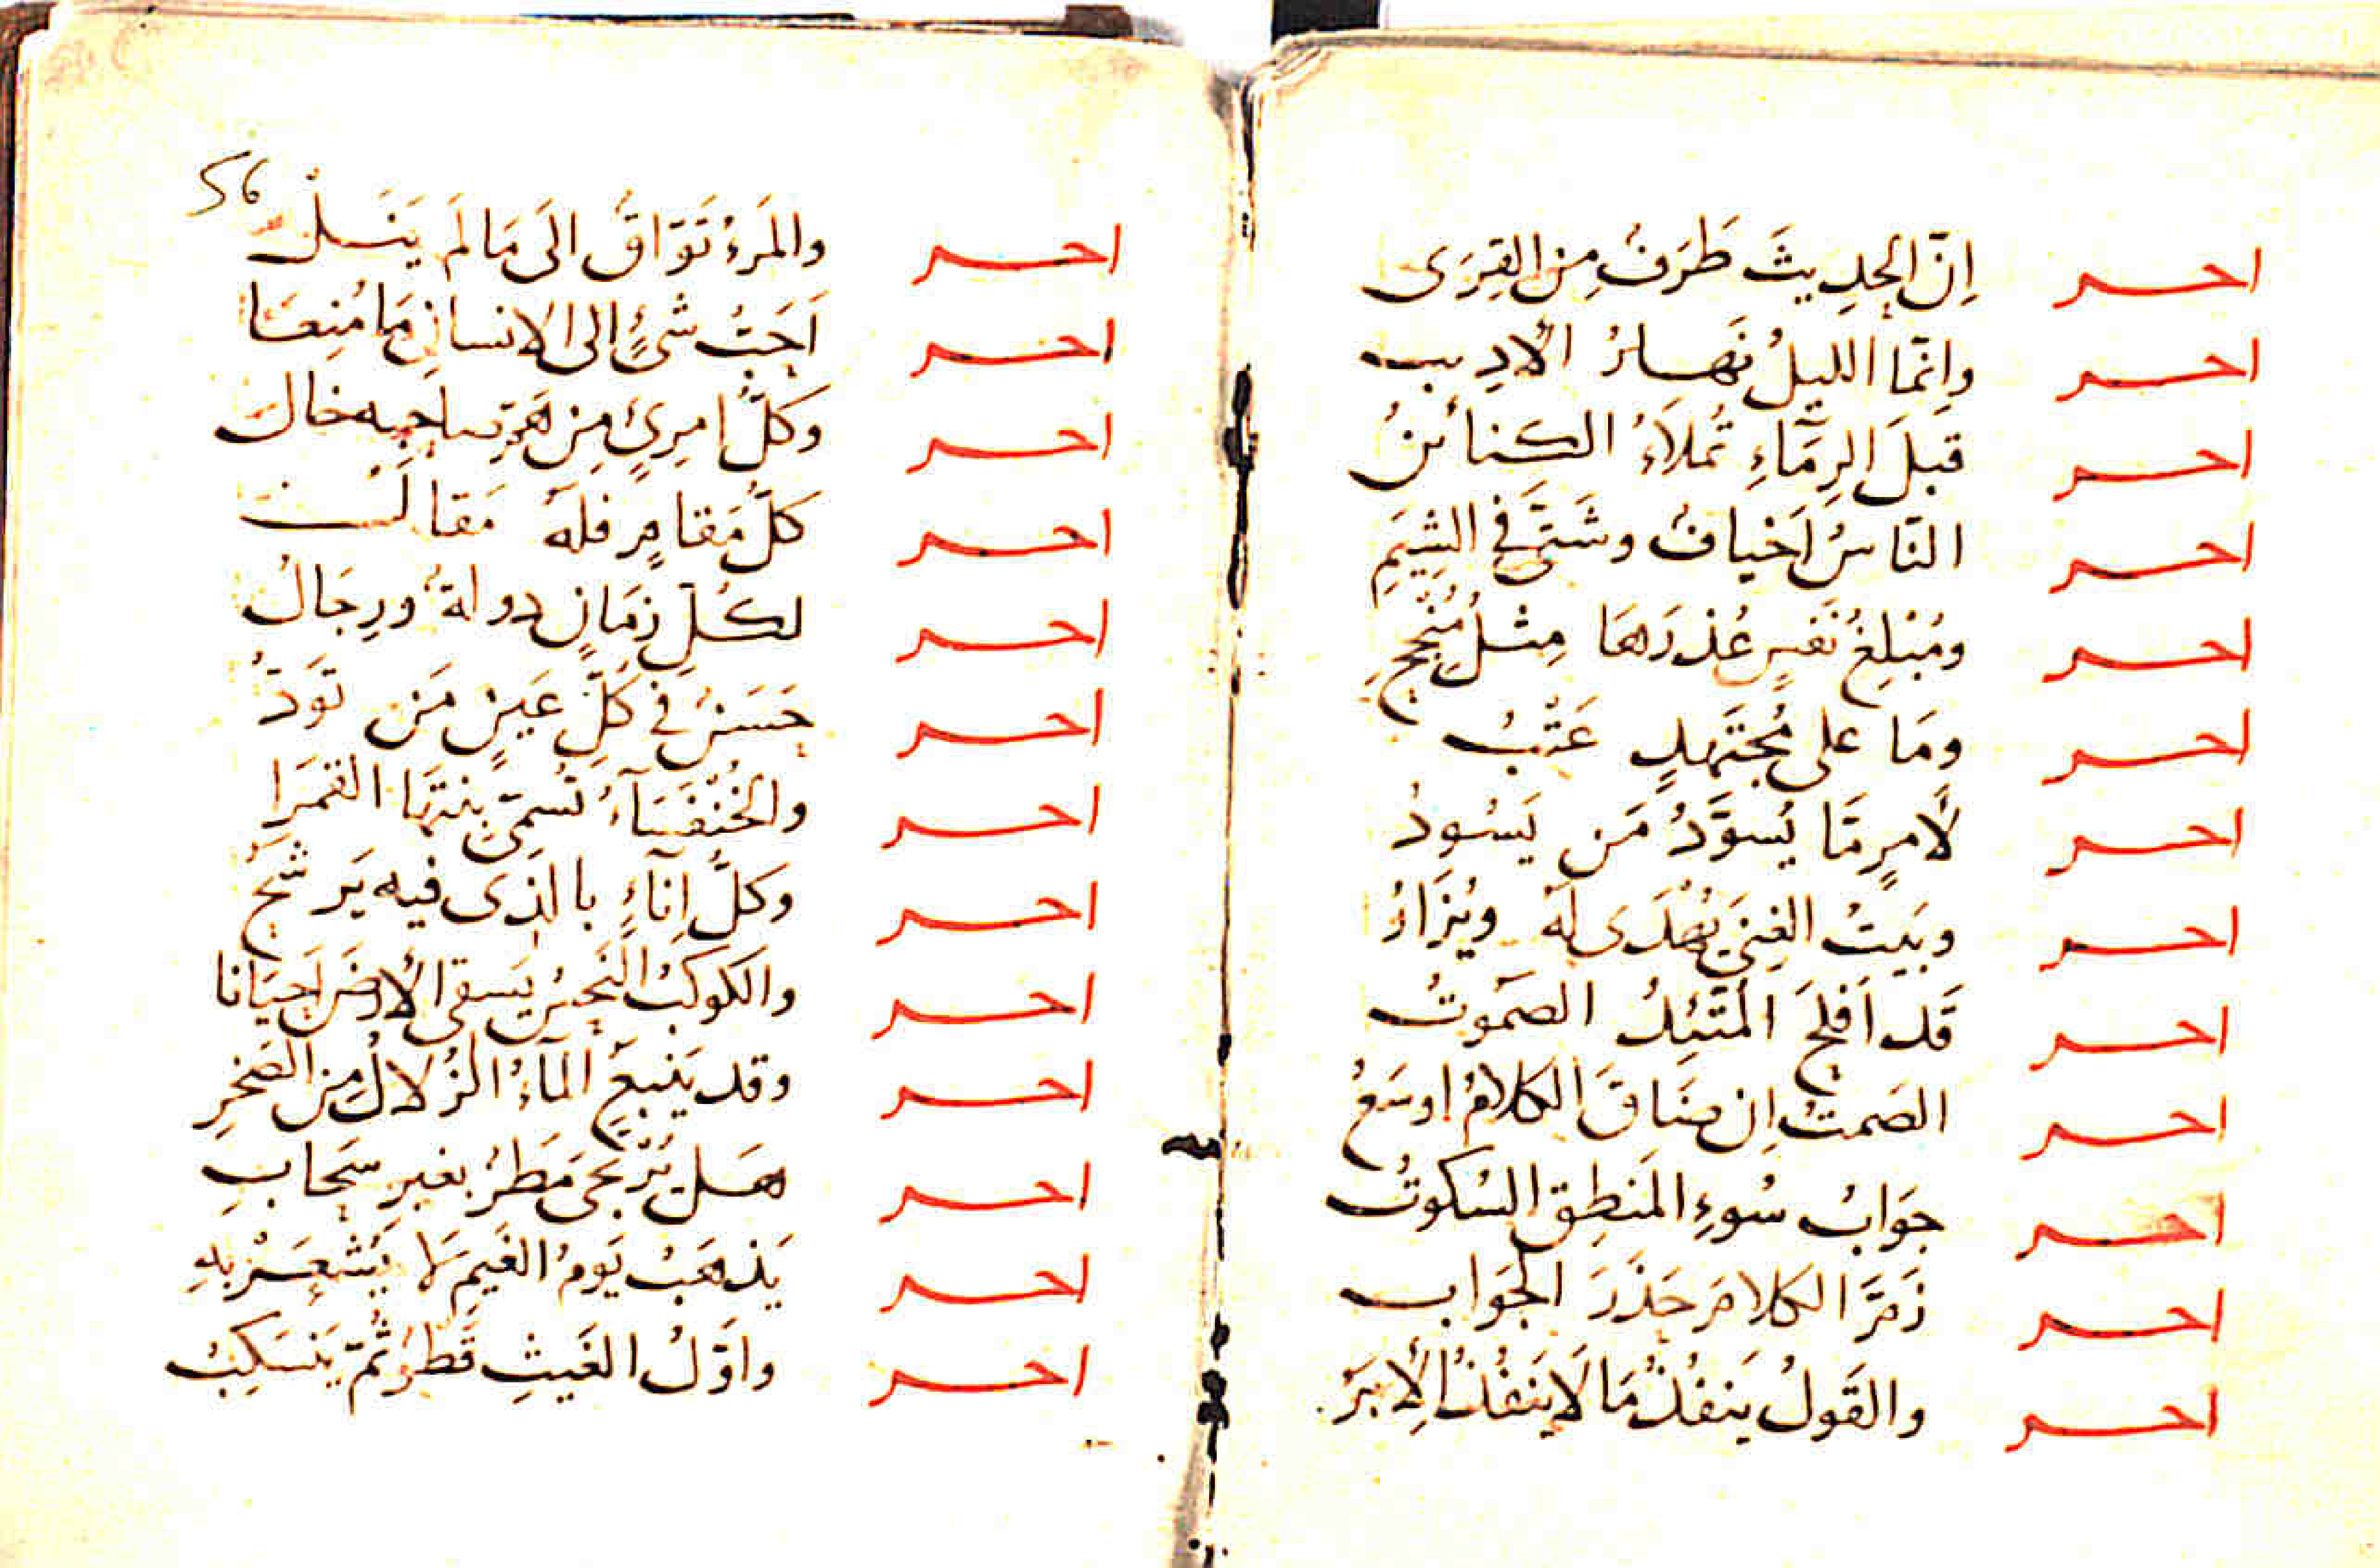 احـــر إنّ الحدِيثَ طَرَفٌ مِن القِرَى
احـــر وإنّما الليلُ نَهـارُ الأدِيب
احـــر قبلَ الرِمَآءِ تُملَاءُ الكنائنُ
احـــر النّاسُ اَخيافٌ وشَتَّى فى الشِيَمِ
احـــر ومُبْلِغُ نَفسٍ عُذرَهَا مِثْلُ مُنْجِحِ
احـــر وَمَا على مُجتَهِدٍ عَتْبُ
احـــر لأمرٍ مَّا يُسوَّدُ مَن يَسُودُ
احـــر وبَيتُ الغِنَى يُهْدَى لَهُ ويُزَارُ
احـــر قَد اَفلحَ المتَّئِدُ الصَمُوتُ
احـــر الصَمتُ إن ضَاقَ الكلامُ اوسَعُ
احـــر جَوَابُ سُوءِ المَنطِقِ السُكوتُ
احـــر زَمَّ الكلامَ حَذَرَ الجَوَاب
احـــر والقَولُ يَنفُذُ مَا لَا يَنفُذُ الإبَرُ
56
احـــر والمَرءُ تَوّاقٌ الَى مَا لَم يَنَـلْ
احـــر اَحَبُّ شىءٍ الى الانسانِ مَا مُنِعَا
احـــر وكلُّ امرِئٍ مِن هَمِّ صاحِبِه خال
احـــر كلُّ مَقامٍ فلَهُ مَقالـ
احـــر لكُلِّ زمَانٍ دولةٌ ورِجَالُ
احـــر حَسَنٌ فى كلِّ عَينٍ مَن تَوَدّ
احـــر والخُنْفَسَآءُ تُسمِّى بِنتَهَا القمَرَا
احـــر وكلُّ اِنَآءٍ بالذى فيه يَرشَحُ
احـــر والكوكبُ النَحِسُ يَسقى الأرضَ اَحيَانا
احـــر وقد يَنبعُ المآءُ الزُلالُ مِن الصَخرِ
احـــر هَـل يُرْتَجَى مَطَرٌ بغيرِ سَحَابِ
احـــر يَذهَبُ يَومُ الغَيمِ لَا يُشْعَـرْ بهِ
احـــر واَوّلُ الغَيثِ قَطرٌ ثُمّ يَنسَكِبُ